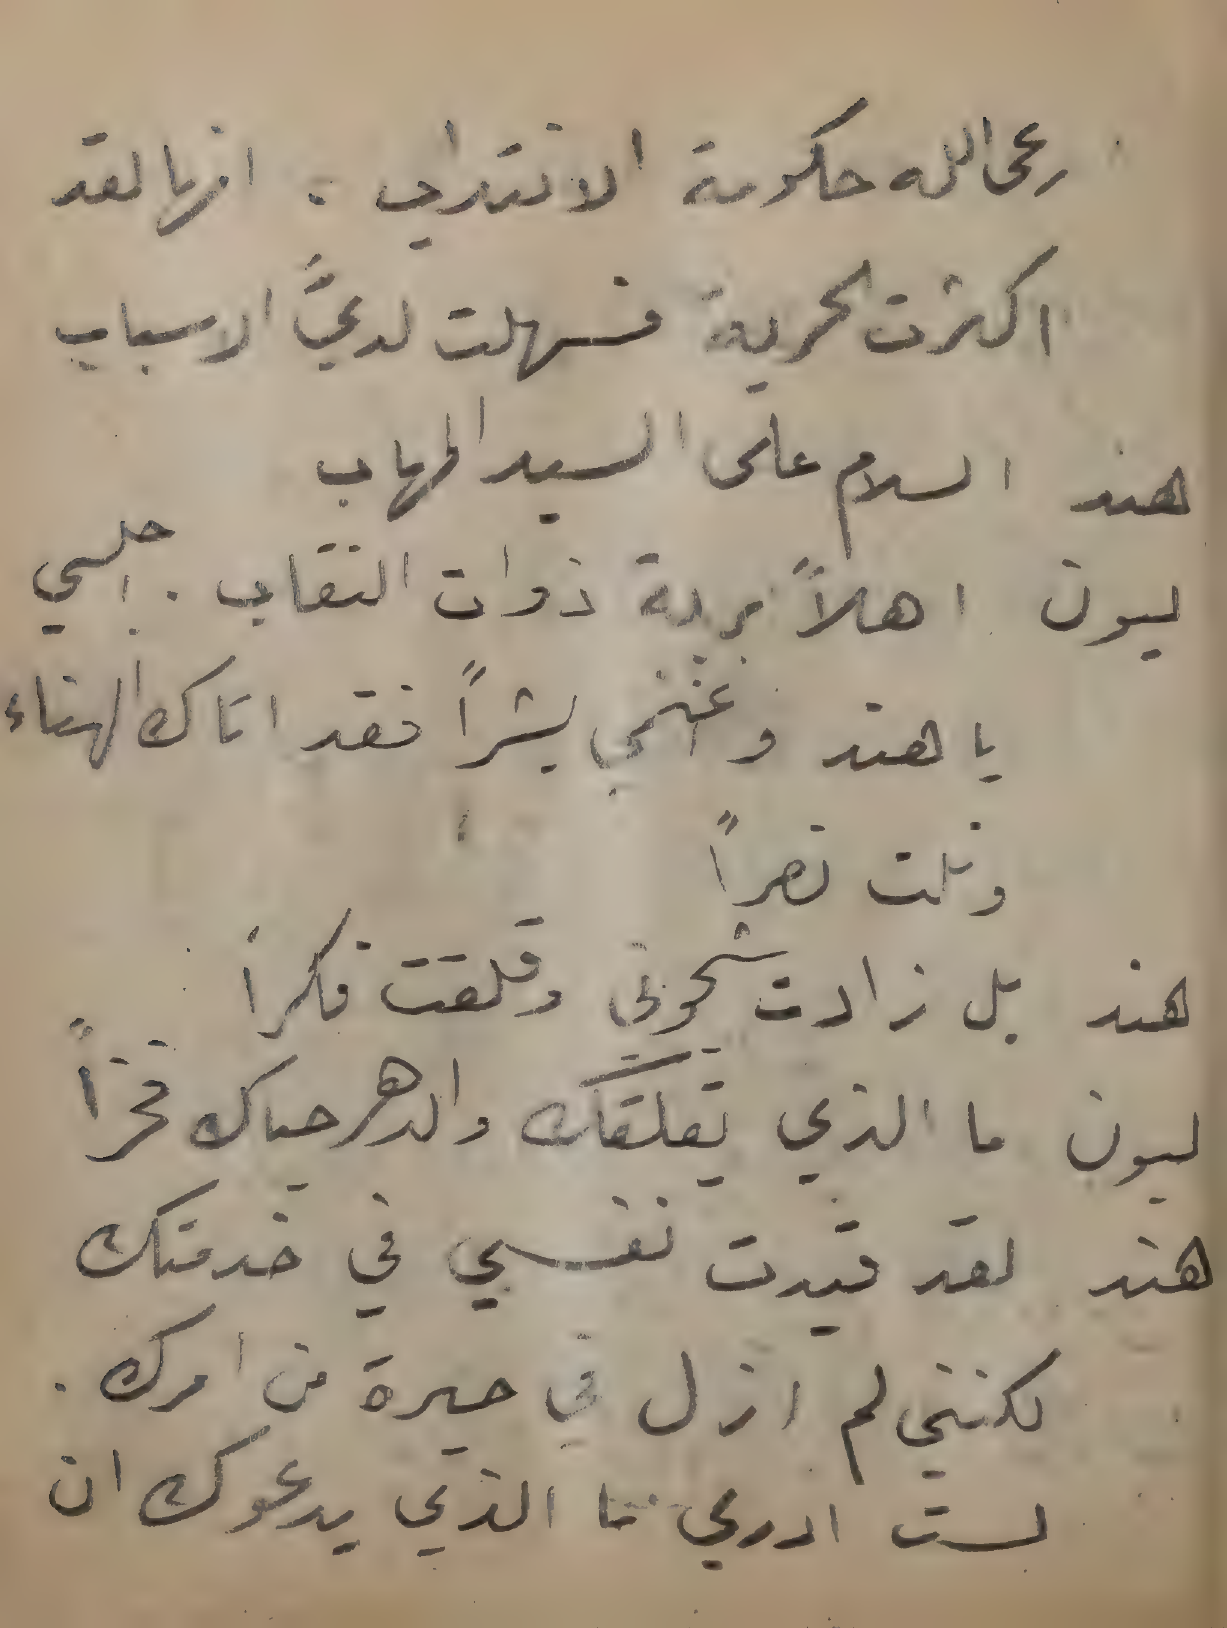 رعى الله حكومة الانتداب . انها لقد
اكثرت الحرية فسهلت لديَّ الاسباب
هند السلام على السيد المهاب
ليون اهلاً بربة ذوات النقاب . اجلسي
يا هند واغنمي بشراً فقد اتاك الهناء
ونلت نصراً
هند بل زادت شجوني وقلقت فكرا
ليون ما الذي يقلقك والدهر حياك فخراً
هند لقد قيدت نفسي في خدمتك
لكنني لم ازل في حيرة من امرك .
لست ادري ما الذي يدعوك ان